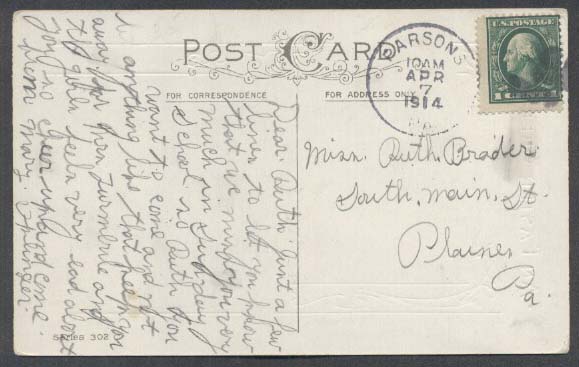 POST CARD
PARSONS
10 AM
APR
7
1914
PA.
U.S. POSTAGE
1 CENTS 1
FOR CORRESPONDENCE
FOR ADDRESS ONLY
Dear Ruth: Just a few
lines to let you know
that we miss you very
much in Sunday
School so Ruth you
want to come and not
let anything like that keep you
away for Mrs. Turnbule and
the girls feels very bad about
you so cheer up and come.
from Mary Springer.
Miss. Ruth Brader
South. main. St.
Plaines
Pa.
Series 302